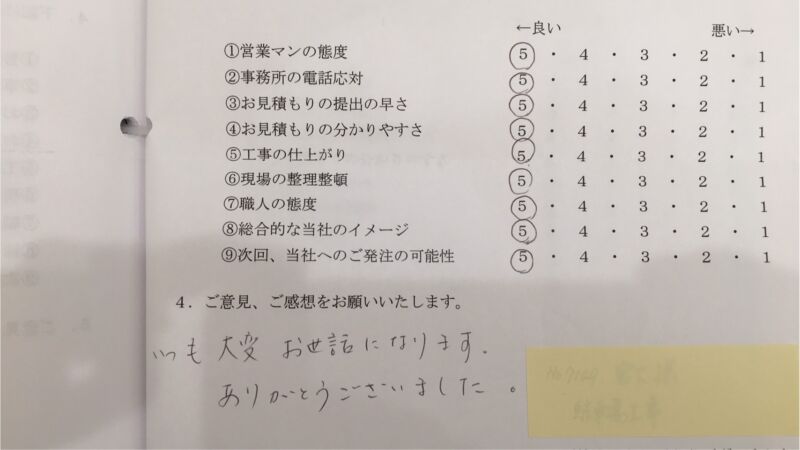 ←良い 悪い→
①営業マンの態度 5 ・ 4 ・ 3 ・ 2 ・ 1
②事務所の電話応対 5 ・ 4 ・ 3 ・ 2 ・ 1
③お見積もりの提出の早さ 5 ・ 4 ・ 3 ・ 2 ・ 1
④お見積もりの分かりやすさ 5 ・ 4 ・ 3 ・ 2 ・ 1
⑤工事の仕上がり 5 ・ 4 ・ 3 ・ 2 ・ 1
⑥現場の整理整頓 5 ・ 4 ・ 3 ・ 2 ・ 1
⑦職人の態度 5 ・ 4 ・ 3 ・ 2 ・ 1
⑧総合的な当社のイメージ 5 ・ 4 ・ 3 ・ 2 ・ 1
⑨次回、当社へのご発注の可能性 5 ・ 4 ・ 3 ・ 2 ・ 1
4．ご意見、ご感想をお願いいたします。
いつも 大変 お世話になります.
ありがとうございました。